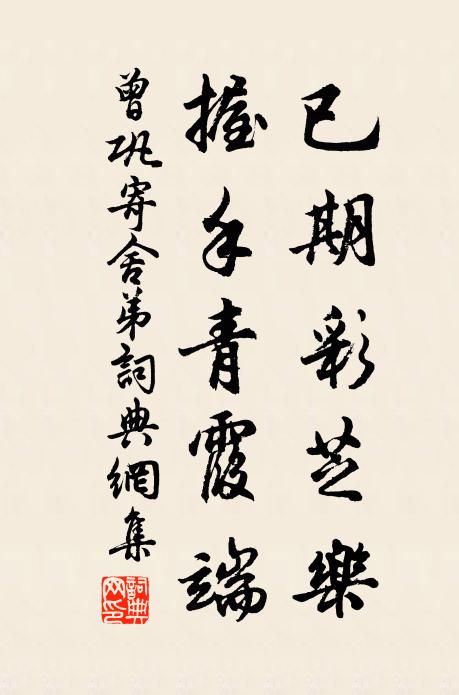 已期彩芝樂
握手青霞端
曾巩寄舍弟詞典網集
詞典網印